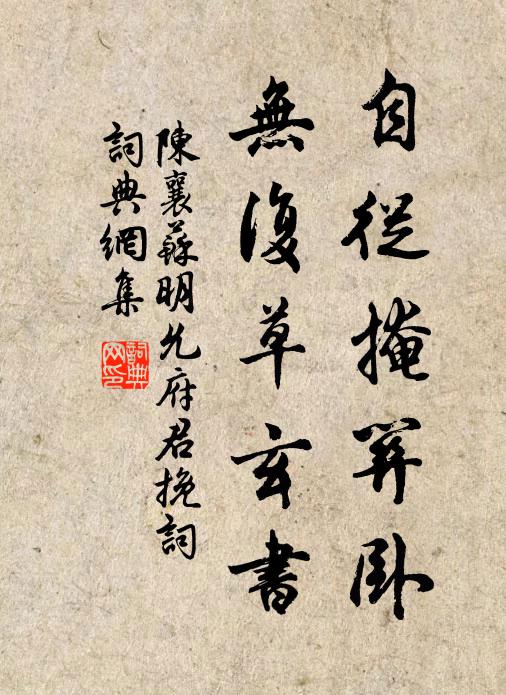 自從掩笄臥
無復草玄書
陳襄蘇明允府君挽詞
詞典網集
詞典网印